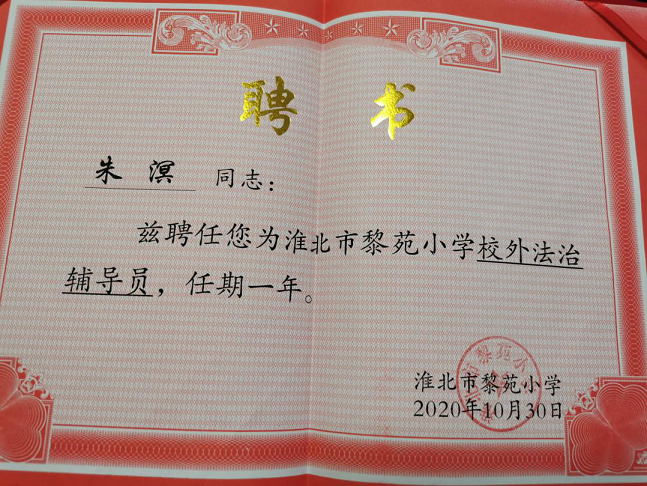 聘书
朱溟 同志：
兹聘任您为淮北市黎苑小学校外法治
辅导员，任期一年。
淮北市黎苑小学
2020年10月30日